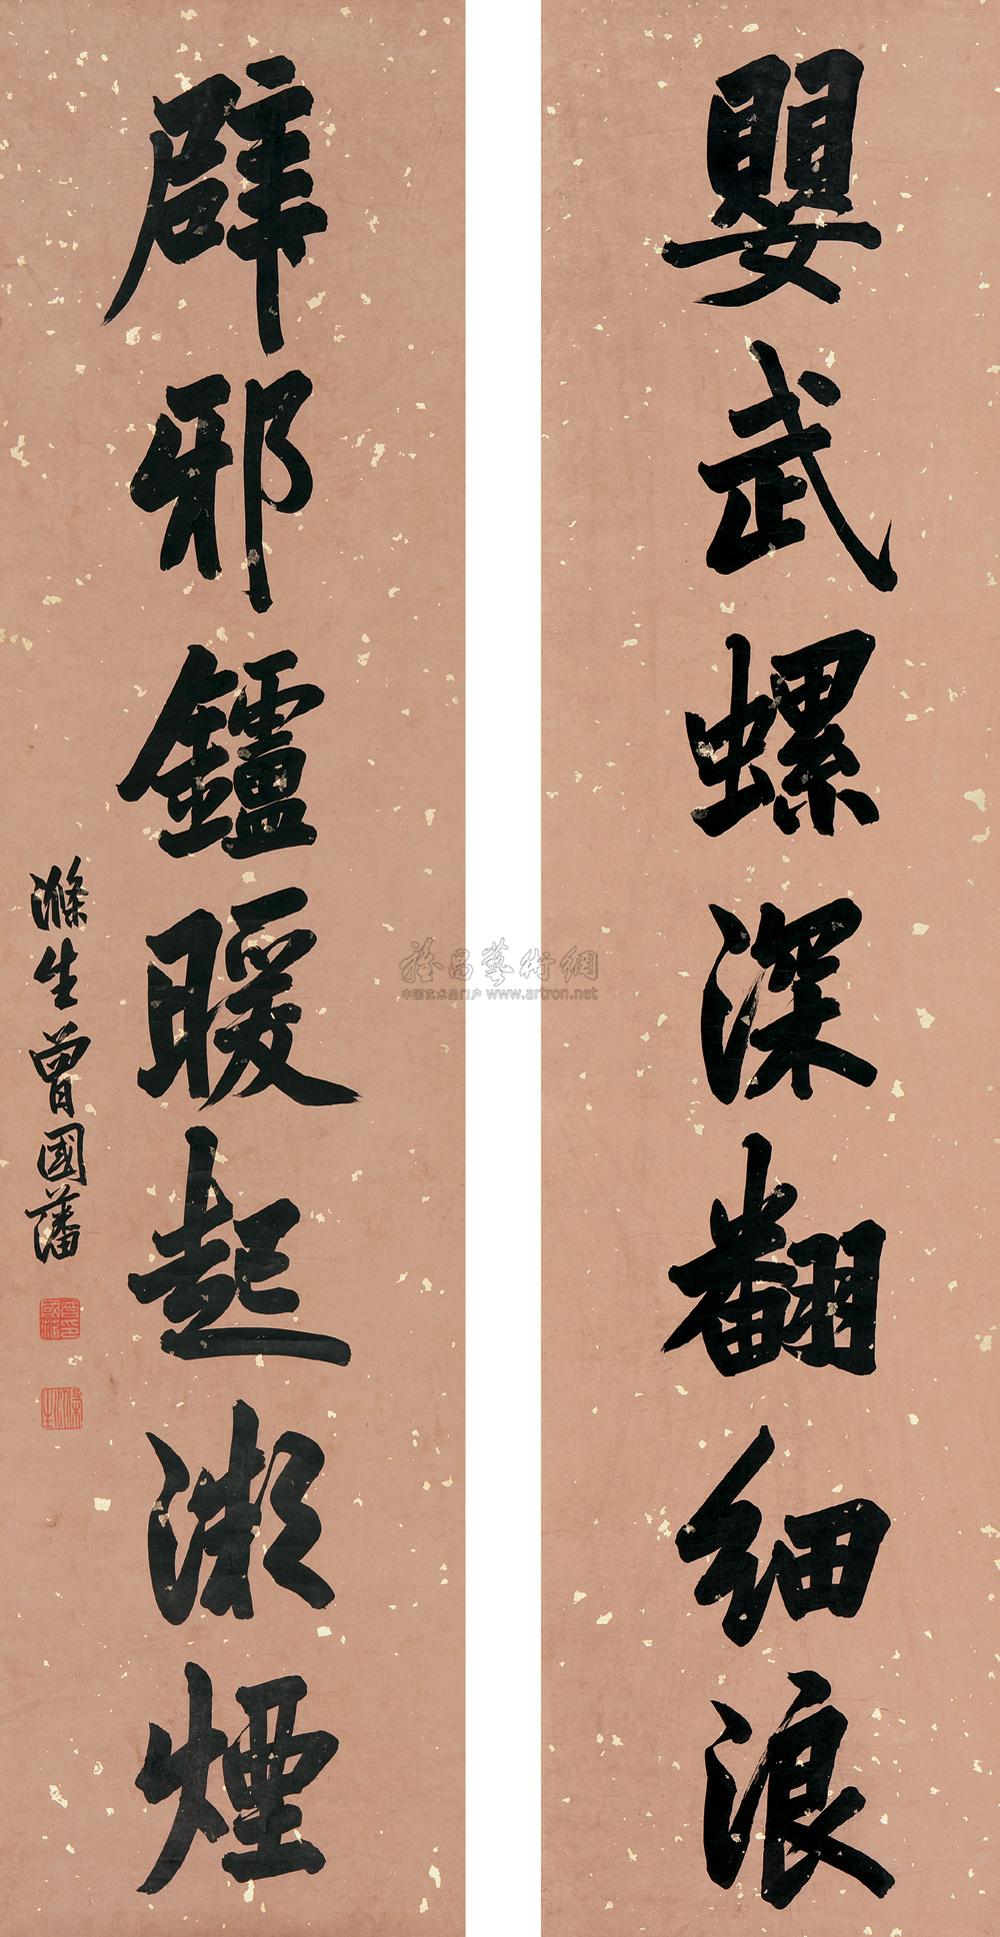 嬰武螺深翻細浪
辟邪鑪暖起微煙
滌生曾國藩
雅昌藝術網
中国艺术品门户 www.artron.net